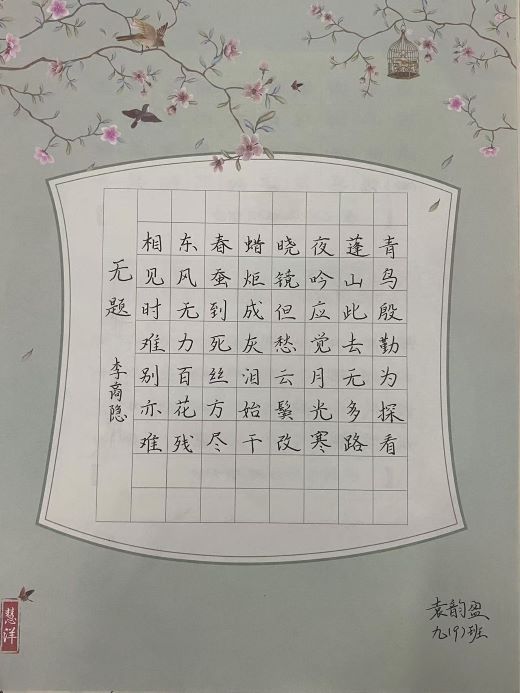 无题
李商隐
相见时难别亦难
东风无力百花残
春蚕到死丝方尽
蜡炬成灰泪始干
晓镜但愁云鬓改
夜吟应觉月光寒
蓬山此去无多路
青鸟殷勤为探看
慧洋
袁韵盈
九(9)班